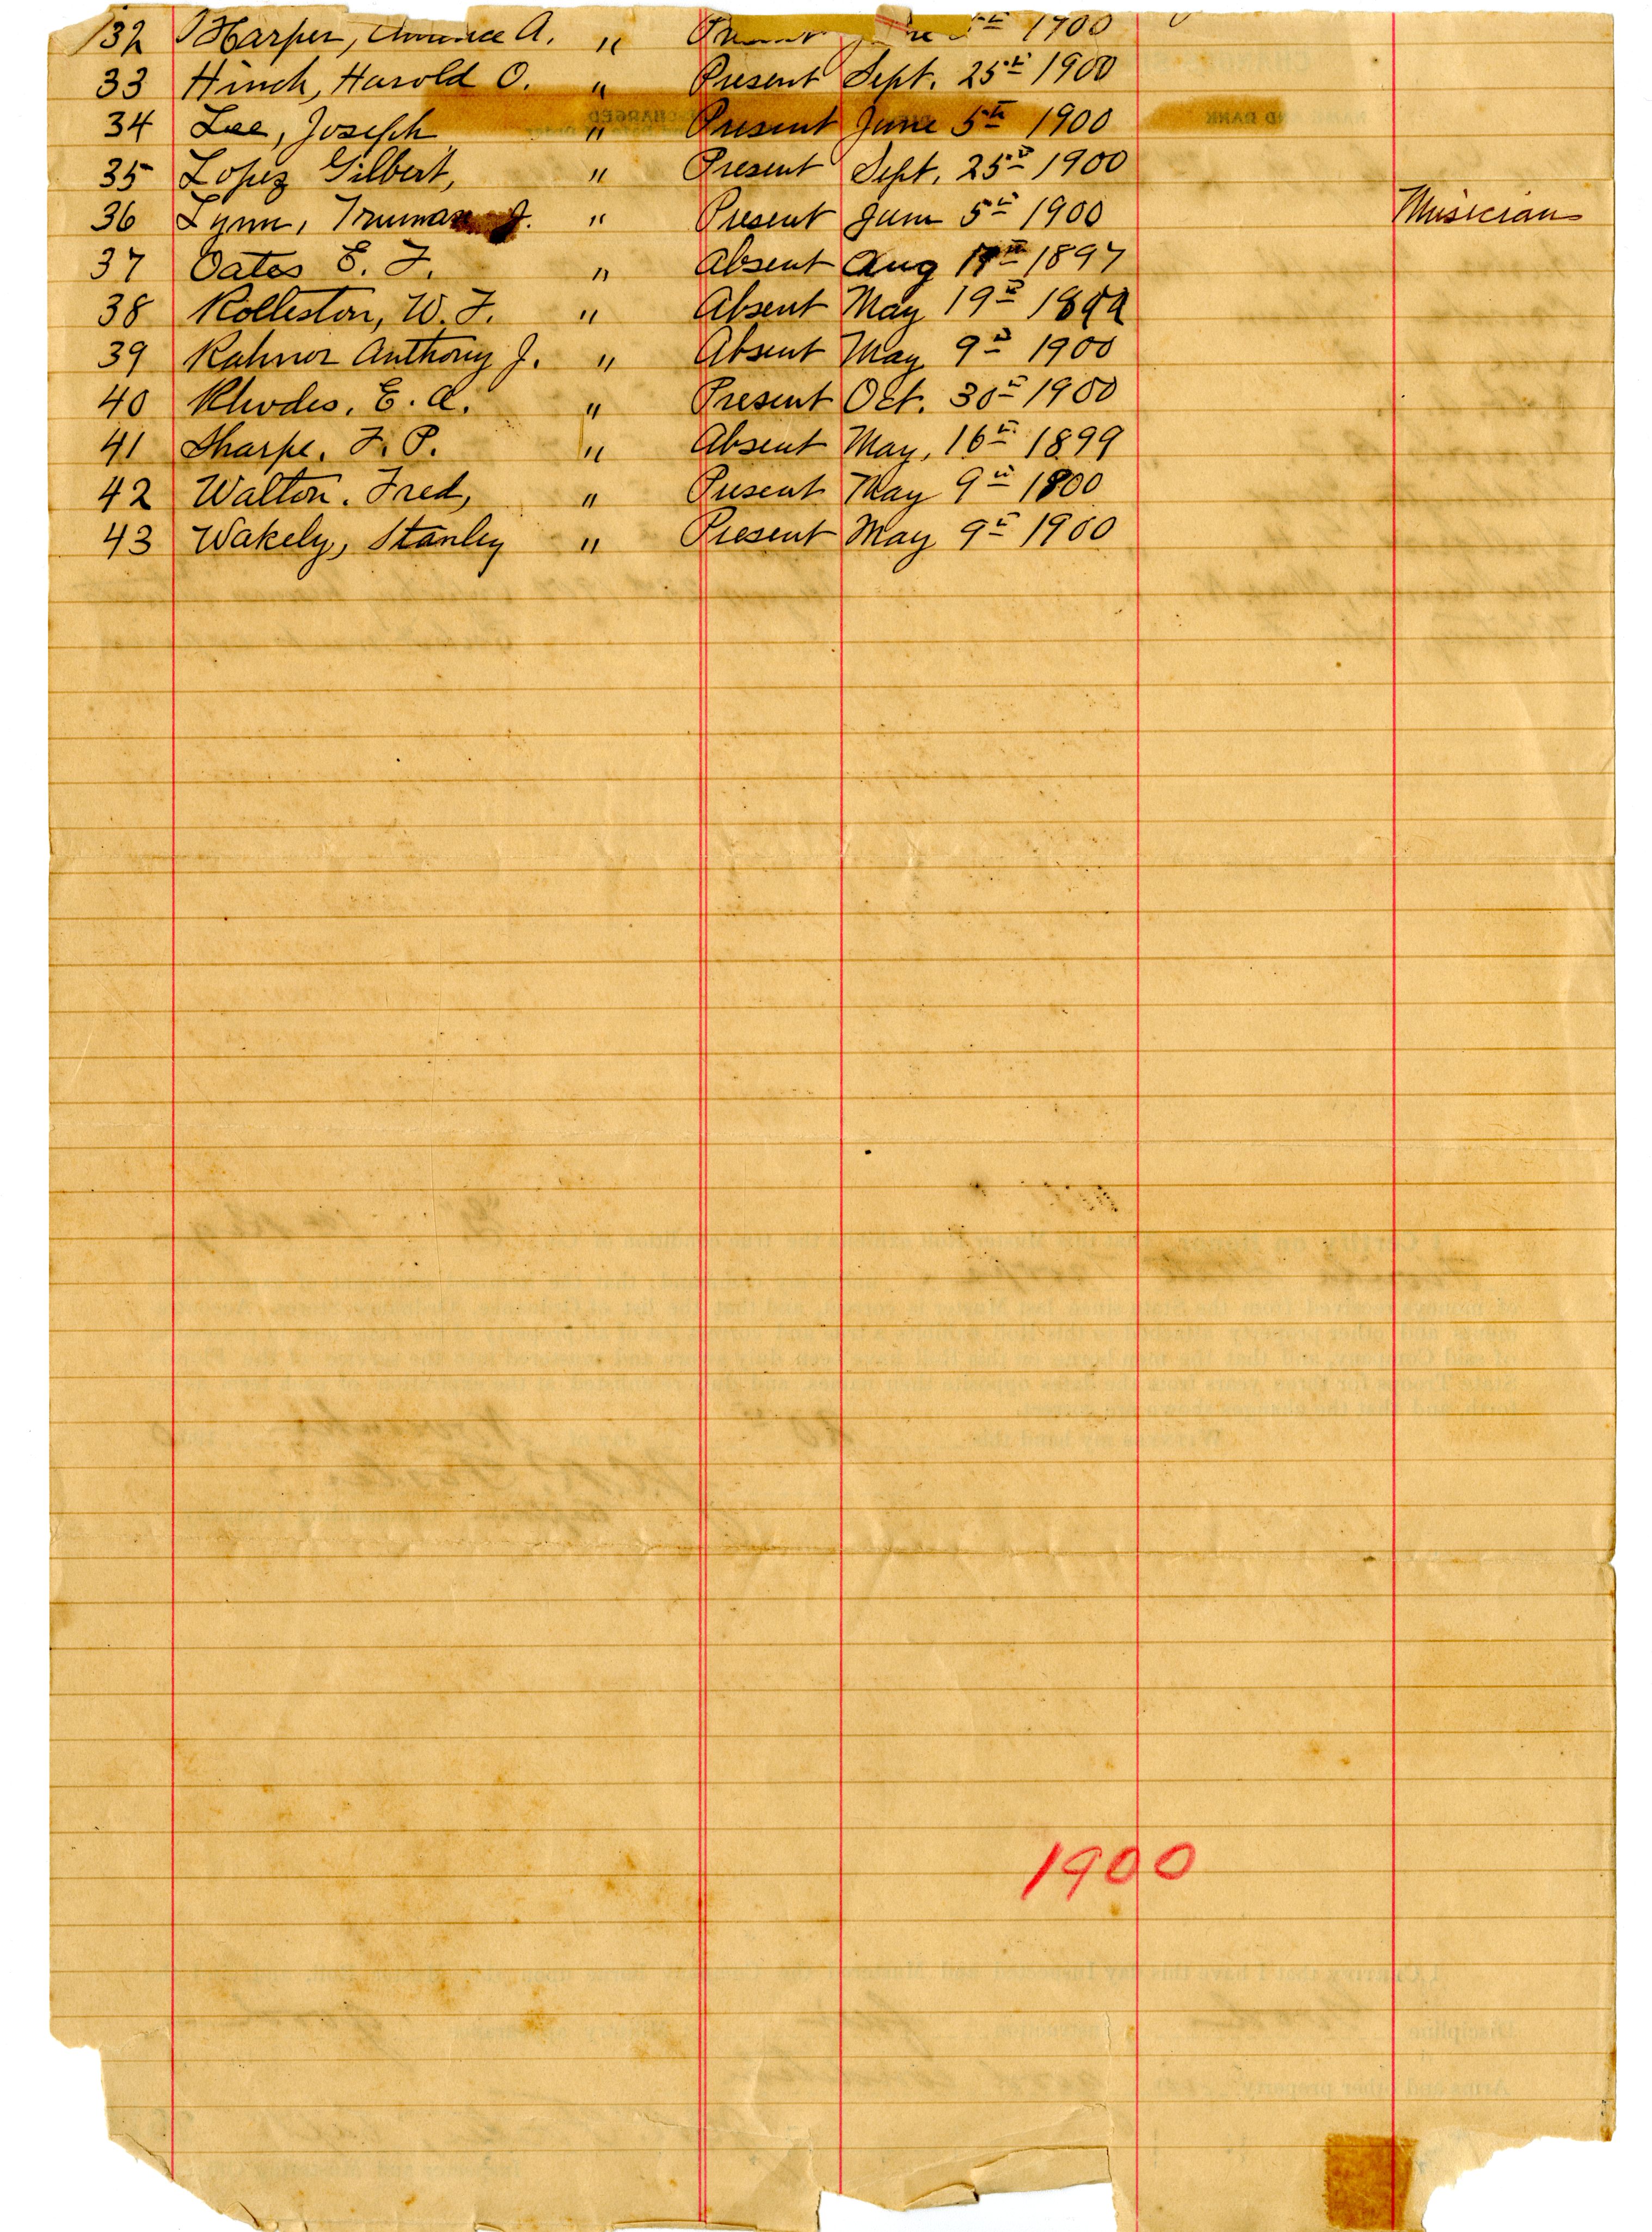 32 Harper, A. " 1900
33 Hinch, Harold O. " Present Sept. 25th 1900
34 Lee, Joseph " Present June 5th 1900
35 Lopez Gilbert, " Present Sept. 25th 1900
36 Lynn, Truman J. " Present June 5th 1900 Musician
37 Oates E. F. " Absent Aug 17th 1897
38 Rolleston, W. F. " Absent May 19th 1899
39 Rahner Anthony J. " Absent May 9th 1900
40 Rhodes, E. A. " Present Oct. 30th 1900
41 Sharpe, F. P. " Absent May, 16th 1899
42 Walton, Fred, " Present May 9th 1900
43 Wakely, Stanley " Present May 9th 1900
1900